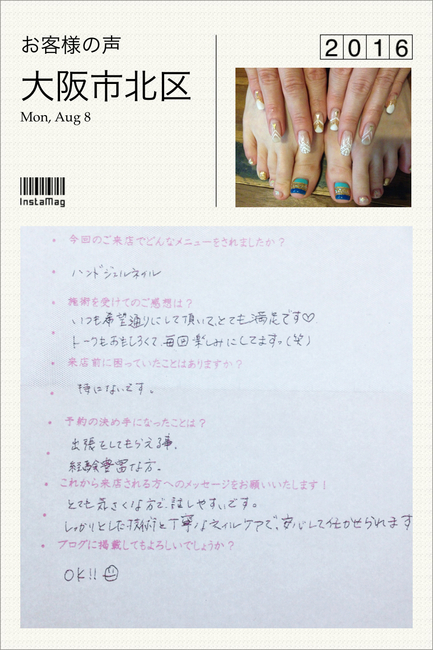 お客様の声
大阪市北区
Mon, Aug 8
InstaMag
2016
今回のご来店でどんなメニューをされましたか?
ハンドジェルネイル
施術を受けてのご感想は?
いつも希望通りにして頂いて、とても満足です♡
トークもおもしろくて毎回楽しみにしてます。(笑)
来店前に困っていたことはありますか?
特にないです。
予約の決め手になったことは?
出張をしてもらえる事。
経験豊富な方。
これから来店される方へのメッセージをお願いいたします!
とても気さくな方で、話しやすいです。
しっかりとした技術と丁寧なネイルケアで、安心して任せられます
ブログに掲載してもよろしいでしょうか?
OK!!